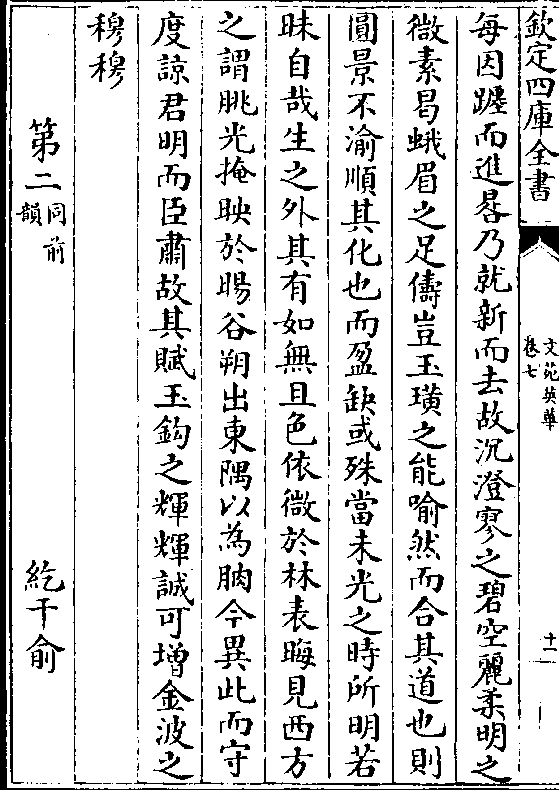 欽定四庫全書
文苑英華
卷七
十一
每因躔而進晷乃就新而去故沉澄寥之碧空麗柔明之
微素曷蛾眉之足儔豈玉璜之能喻然而合其道也則
圓景不渝順其化也而盈缺或殊當未光之時所明若
昧自哉生之外其有如無且色依微於林表晦見西方
之謂朓光掩映於暘谷朔出東隅以為朒今異此而守
度諒君明而臣肅故其賦玉鈎之輝輝誠可増金波之
穆穆
第二 同前韻 紇干俞